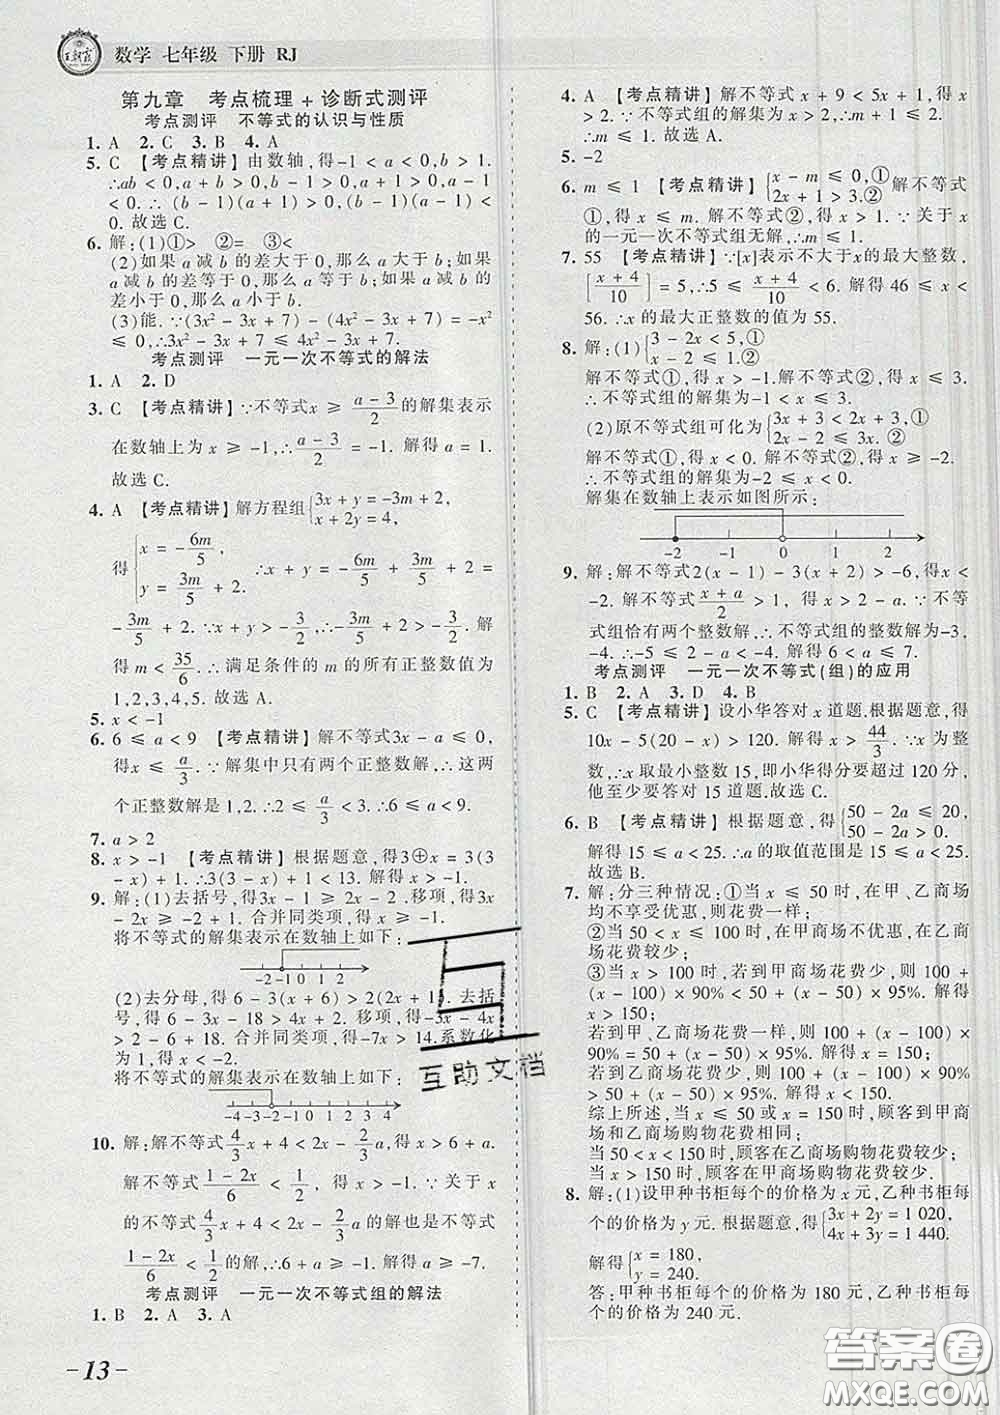 王朝霞
数学 七年级 下册 RJ
第九章 考点梳理 + 诊断式测评
考点测评 不等式的认识与性质
1. A 2. C 3. B 4. A
5. C 【考点精讲】由数轴,得-1 < a < 0, b > 1.
∴ab < 0, a + b > 0, b - 1 > 0, a + 1 > 0, a - b < 0. ∴ (b - 1)(a + 1) > 0, (b - 1)(a - b) < 0. 故选 C.
6. 解:(1)①> ②= ③<
(2)如果 a 减 b 的差大于 0,那么 a 大于 b;如果
a 减 b 的差等于 0,那么 a 等于 b;如果 a 减 b 的
差小于 0,那么 a 小于 b.
(3)能. ∵(3x² - 3x + 7) - (4x² - 3x + 7) = -x²
≤ 0,∴3x² - 3x + 7 ≤ 4x² - 3x + 7.
考点测评 一元一次不等式的解法
1. A 2. D
3. C 【考点精讲】∵不等式 x ≥ (a - 3)/2 的解集表示
在数轴上为 x ≥ -1,∴(a - 3)/2 = -1. 解得 a = 1.
故选 C.
4. A 【考点精讲】解方程组{3x + y = -3m + 2, x + 2y = 4,
得{x = -6m/5, y = 3m/5 + 2. ∴x + y = -6m/5 + 3m/5 + 2 =
-3m/5 + 2. ∵x + y > -3/2,∴-3m/5 + 2 > -3/2. 解
得 m < 35/6. ∴满足条件的 m 的所有正整数值为
1,2,3,4,5. 故选 A.
5. x < -1
6. 6 ≤ a < 9 【考点精讲】解不等式3x - a ≤ 0,
得x ≤ a/3. ∵解集中只有两个正整数解,∴这两
个正整数解为 1,2. ∴2 ≤ a/3 < 3. ∴6 ≤ a < 9.
7. a > 2
8. x > -1 【考点精讲】根据题意,得3⊕x = 3(3
- x) + 1. ∴3(3 - x) + 1 < 13. 解得 x > -1.
9. 解:(1)去括号,得 x - 1 ≥ 2x - 2 + 3x. 移项,得
x - 2x ≥ -2 + 1. 合并同类项,得 x ≤ -1.
将不等式的解集表示在数轴上如下:
-2 -1 0 1 2
(2)去分母,得 6 - 3(x + 6) > 2(2x + 1). 去括
号,得 6 - 3x - 18 > 4x + 2. 移项,得-3x - 4x
> 2 - 6 + 18. 合并同类项,得-7x > 14. 系数化
为 1,得 x < -2.
将不等式的解集表示在数轴上如下:
-4 -3 -2 -1 0 1 2 3 4
10. 解:解不等式 4/3 x + 4 < 2x - 2/3 a,得 x > 6 + a.
解不等式 (1 - 2x)/6 < 1/2,得 x > -1. ∵关于 x
的不等式 4/3 x + 4 < 2x - 2/3 a 的解也是不等式
(1 - 2x)/6 < 1/2 的解,∴6 + a ≥ -1. 解得 a ≥ -7.
考点测评 一元一次不等式组的解法
1. B 2. A 3. A
4. A 【考点精讲】解不等式 x + 9 < 5x + 1,得
x > 2. ∵不等式组的解集为 x > 2,∴m + 1 ≤ 2.
∴m ≤ 1. 故选 A.
5. -2
6. m ≤ 1 【考点精讲】{x - m ≤ 0,① 2x + 1 > 3.② 解不等式
①,得 x ≤ m. 解不等式②,得 x > 1. ∵关于 x
的一元一次不等式组无解,∴m ≤ 1.
7. 55 【考点精讲】∵[x]表示不大于x的最大整数,
[(x + 4)/10] = 5,∴5 ≤ (x + 4)/10 < 6. 解得 46 ≤ x <
56. ∴x 的最大正整数的值为 55.
8. 解:(1){3 - 2x < 5,① x - 2 ≤ 1.②
解不等式①,得 x > -1.解不等式②,得 x ≤ 3.
∴不等式组的解集为-1 < x ≤ 3.
(2)原不等式组可化为{3x + 3 < 2x + 3,① 2x - 2 ≤ 3x. ②
解不等式①,得 x < 0. 解不等式②,得 x ≥ -2.
∴不等式组的解集为-2 ≤ x < 0.
解集在数轴上表示如图所示:
-2 -1 0 1 2
9. 解:解不等式2(x - 1) - 3(x + 2) > -6,得x <
-2. 解不等式 (x + a)/2 > 1,得 x > 2 - a. ∵不等
式组恰有两个整数解,∴不等式的整数解为-3,
-4. ∴-5 ≤ 2 - a < -4. 解得 6 < a ≤ 7.
考点测评 一元一次不等式(组)的应用
1. B 2. A 3. D 4. B
5. C 【考点精讲】设小华答对 x 道题.根据题意,得
10x - 5(20 - x) > 120. 解得 x > 44/3. ∵x 为整
数,∴x 取最小整数 15,即小华得分要超过 120 分,
他至少要答对 15 道题.故选 C.
6. B 【考点精讲】根据题意,得{50 - 2a ≤ 20, 50 - 2a > 0.
解得 15 ≤ a < 25. ∴a 的取值范围是 15 ≤ a < 25.
故选 B.
7. 解:分三种情况:①当 x ≤ 50 时,在甲、乙商场
均不享受优惠,则花费一样;
②当 50 < x ≤ 100 时,在甲商场不优惠,在乙商
场花费较少;
③当 x > 100 时,若到甲商场花费少,则 100 +
(x - 100) × 90% < 50 + (x - 50) × 95%. 解得
x > 150;
若到甲、乙商场花费一样,则 100 + (x - 100) ×
90% = 50 + (x - 50) × 95%. 解得 x = 150;
若到乙商场花费少,则 100 + (x - 100) × 90% >
50 + (x - 50) × 95%. 解得 x < 150.
综上所述,当 x ≤ 50 或 x = 150 时,顾客到甲商
场和乙商场购物花费相同;
当 50 < x < 150 时,顾客在乙商场购物花费较少;
当 x > 150 时,顾客在甲商场购物花费较少.
8. 解:(1)设甲种书柜每个的价格为 x 元,乙种书柜每
个的价格为 y 元. 根据题意,得{3x + 2y = 1 020, 4x + 3y = 1 440.
解得{x = 180, y = 240.
答:甲种书柜每个的价格为 180 元,乙种书柜每
个的价格为 240 元.
互助文档
- 13 -
答案圈
MXQE.COM